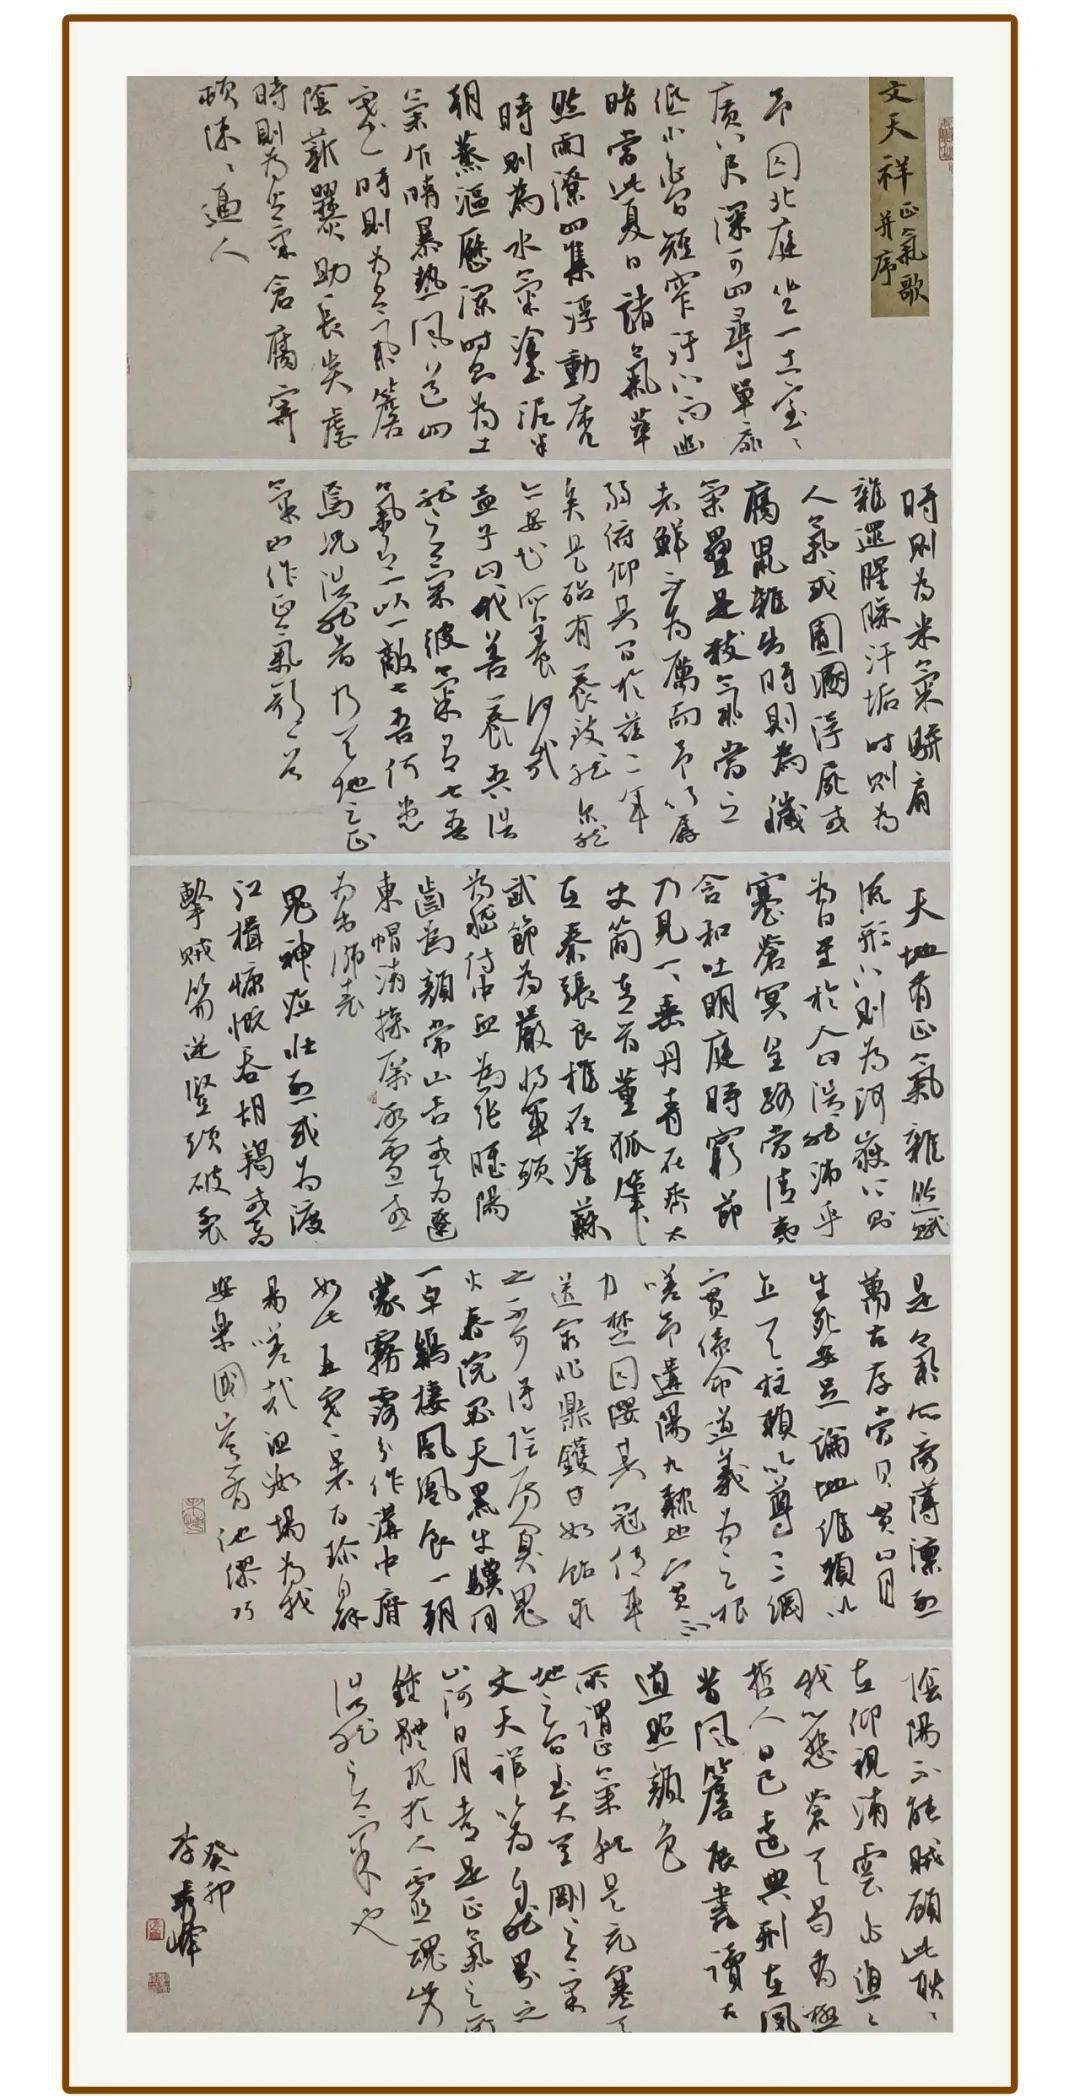 文天祥
正氣歌
并序
予囚北庭坐一土室〻
廣八尺深可四尋單扉
低小白間短窄汙下而幽
暗當此夏日諸氣萃
然雨潦四集浮動床几
時則為水氣塗泥半
朝蒸漚歷瀾時則為土
氣乍晴暴熱風道四
塞時則為日氣簷
陰薪爨助長炎虐
時則為火氣倉腐寄
頓陳〻逼人
時則為米氣駢肩
雜遝腥臊汗垢時則為
人氣或圊溷浮屍或
腐鼠雜出時則為穢
氣疊是數氣當之
者鮮不為厲而予以孱
弱俯仰其間於茲二年
矣是殆有養致然爾然
亦安知所養何哉
孟子曰我善養吾浩
然之氣彼氣有七吾
氣有一以一敵七吾何患
焉況浩然者乃天地之正
氣也作正氣歌一首
天地有正氣雜然賦
流形下則為河嶽上則
為日星於人曰浩然沛乎
塞蒼冥皇路當清夷
含和吐明庭時窮節
乃見一一垂丹青在齊太
史簡在晉董狐筆
在秦張良椎在漢蘇
武節為嚴將軍頭
為嵇侍中血為張睢陽
齒為顏常山舌或為遼
東帽清操厲冰雪或
為出師表
鬼神泣壯烈或為渡
江楫慷慨吞胡羯或為
擊賊笏逆豎頭破裂
是氣所旁薄凜烈
萬古存當其貫日月
生死安足論地維賴以
立天柱賴以尊三綱
實係命道義為之根
嗟予遘陽九隸也實不
力楚囚纓其冠傳車
送窮北鼎鑊甘如飴求
之不可得陰房闃鬼
火春院閟天黑牛驥同
一皂雞棲鳳凰食一朝
蒙霧露分作溝中瘠
如此再寒暑百沴自辟
易嗟哉沮洳場為我
安樂國豈有他繆巧
陰陽不能賊顧此耿〻
在仰視浮雲白悠〻
我心悲蒼天曷有極
哲人日已遠典刑在夙
昔風簷展書讀古
道照顏色
所謂正氣就是充塞天
地之間至大至剛之氣
文天祥以為自然界之
山河日月都是正氣之所
鍾體現於人靈魂
浩然之氣也
癸卯
李秀峰